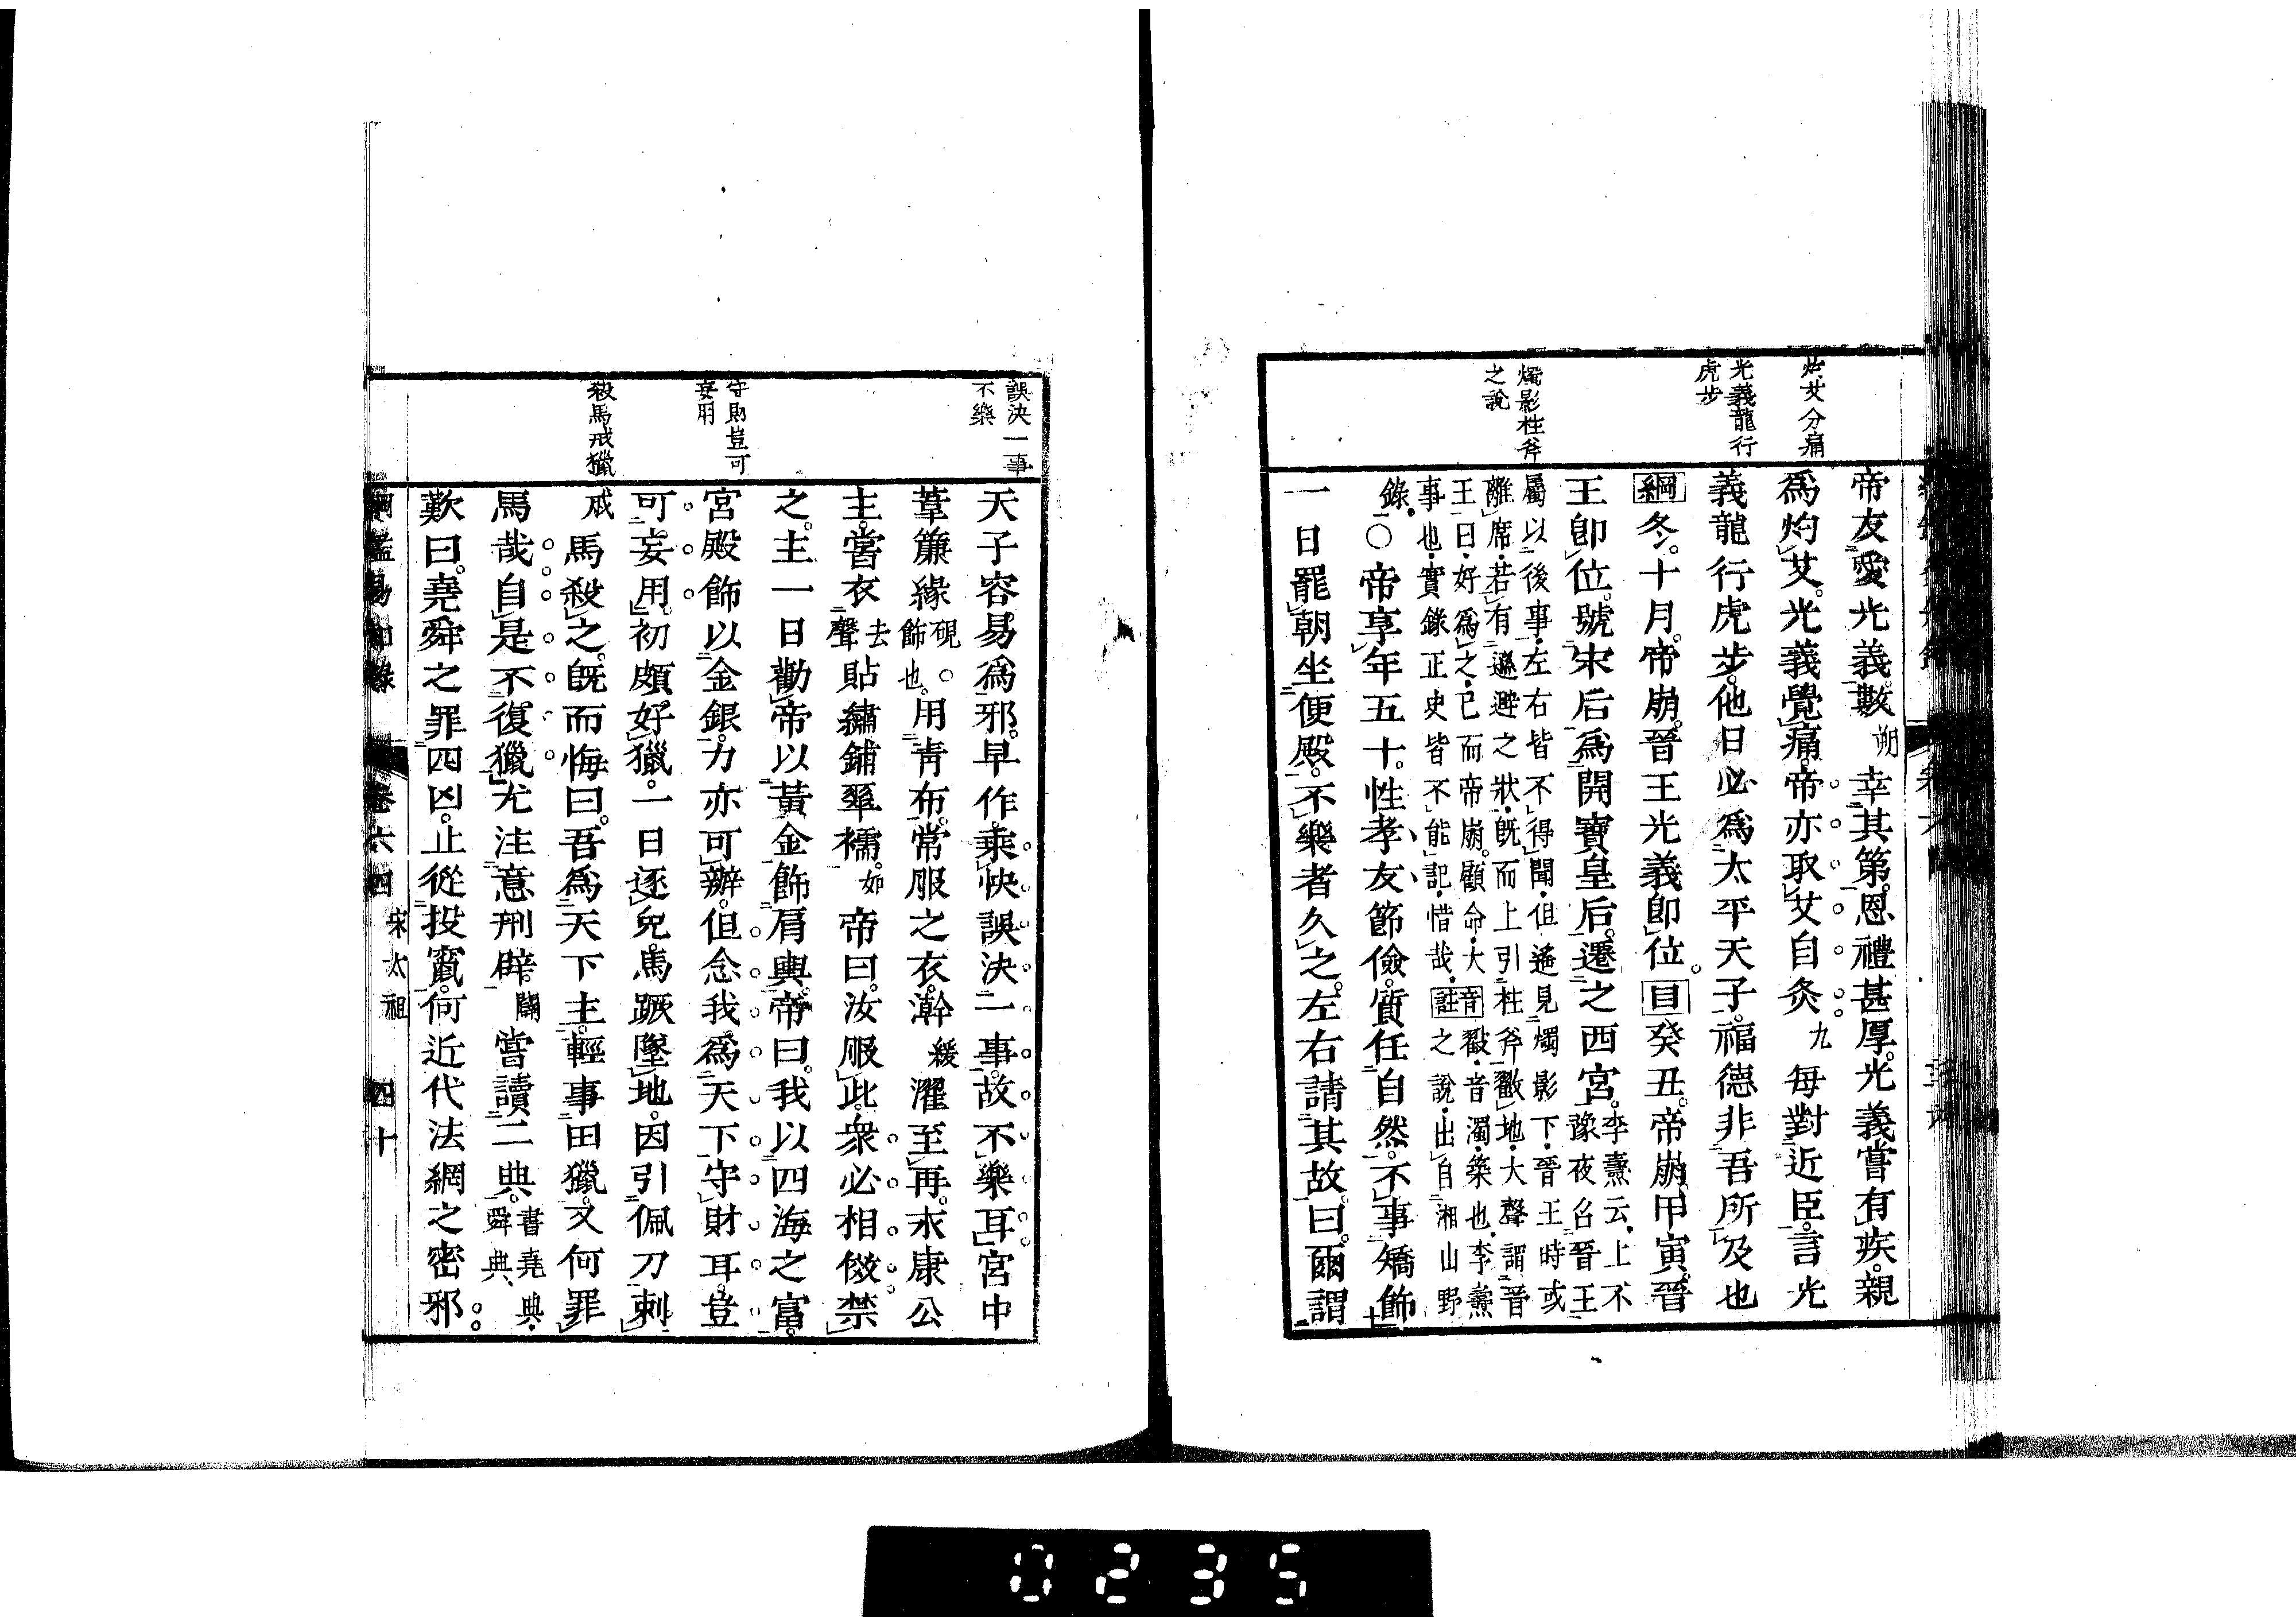 灼艾分痛
光義龍行
虎步
燭影柱斧
之說
帝友愛光義數朔幸其第恩禮甚厚。光義嘗有疾。親
爲灼艾。光義覺痛。帝亦取艾自灸。九每對近臣。言光
義龍行虎步。他日必爲太平天子。福德非吾所及也
綱冬。十月。帝崩。晉王光義卽位。目癸丑。帝崩。甲寅。晉
王卽位。號宋后爲開寶皇后。遷之西宮。李燾云。上不
豫。夜召晉王
屬以後事。左右皆不得聞。但遙見燭影下。晉王時或
離席。若有遜避之狀。旣而上引柱斧戳地。大聲謂晉
王曰。好爲之。已而帝崩。顧命大
事也。實錄正史皆不能記。惜哉。註音戳。音濁。築也。李燾
之說。出自湘山野
錄。○帝享年五十。性孝友節儉。質任自然。不事矯飾
一日罷朝坐便殿。不樂者久之。左右請其故。曰。爾謂
誤決一事
不樂
守財豈可
妄用
殺馬戒獵
天子容易爲邪。早作。乘快誤決一事。故不樂耳。宮中
葦簾緣硯。○飾也。用青布。常服之衣。澣緩濯至再。永康公
主。嘗衣去聲貼繡鋪翠襦。如帝曰。汝服此。衆必相倣。禁
之。主一日勸帝以黃金飾肩輿。帝曰。我以四海之富。
宮殿飾以金銀。力亦可辦。但念我爲天下守財耳。豈
可妄用。初頗好獵。一日逐兔。馬蹶墜地。因引佩刀刺
戚馬殺之。旣而悔曰。吾爲天下主。輕事田獵。又何罪
馬哉。自是不復獵。尤注意刑辟。闢嘗讀二典。書堯典、舜典、
歎曰。堯舜之罪四凶。止從投竄。何近代法網之密邪。
綱鑑易知錄 卷六四 宋太祖 四十
0235